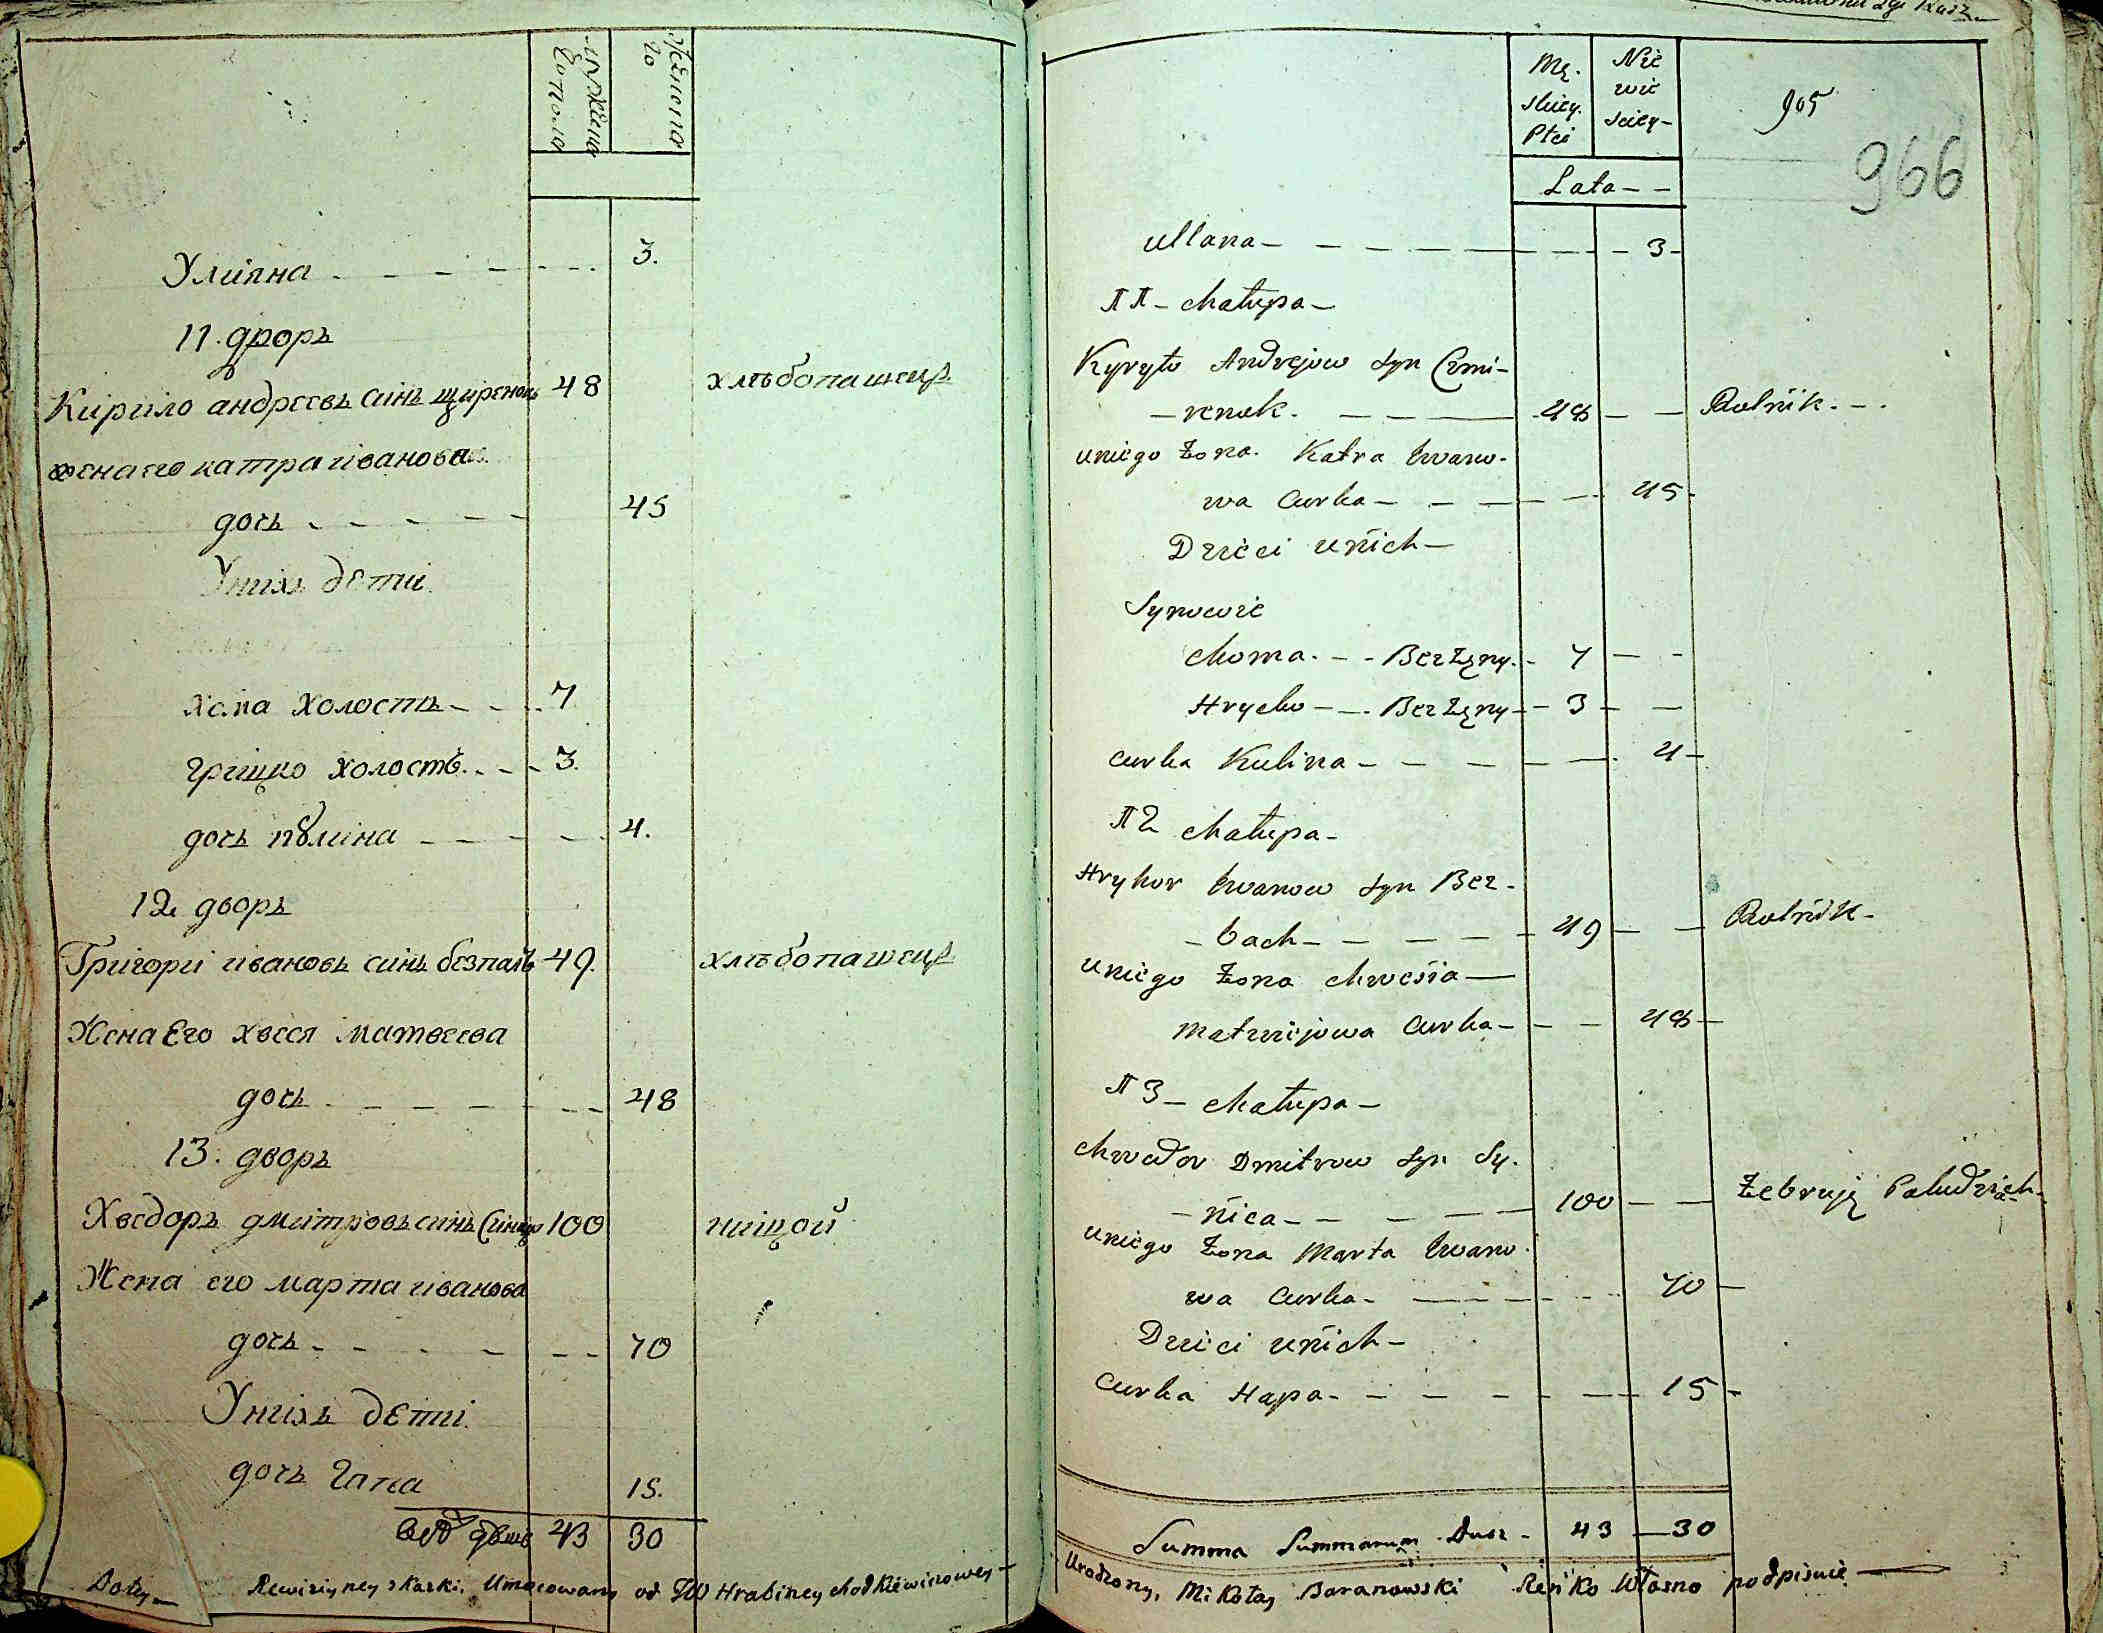 мужеска
го пола
женска
го
Улияна - - - - - - - 3.
11. дворъ
Кирило андреевъ синъ щиренокъ 48 хлѣбопашецъ
жена его катра иванова
дочь - - - - - 45
У нихъ дети
хома холостъ - - - 7
грицко холостъ - - - 3.
дочь кулина - - - - - 4.
12. дворъ
Григори ивановъ синъ безпалъ 49. хлѣбопашецъ
Жена Его хвеся матвеева
дочь - - - - - - 48
13. дворъ
Хведоръ дмитровъ синъ Синица 100 нищой
Жена его марта иванова
дочь - - - - - - 70
У нихъ дети
дочь Гапа 15.
43 30
Do tey Rewizÿney skazki Umocowany od JW Hrabiney Chodkiewiczowey
Mę-
skiey
Płci
Nie
wie
sciey-
905
966
Lata - -
Ullana - - - - - - - - 3 -
11 - Chałupa -
Kyryło Andrejow Syn Czmi-
- renok. - - - - 48 - - Rolnik. - -
u niego Żona. Katra Iwano-
wa Curka - - - - - 45 -
Dzieci u nich -
Synowie
Choma. - - Bezżęny. - 7 - -
Hrycko - - Bezżęny - - 3 - -
Curka Kulina - - - - - - 4 -
12 Chałupa -
Hryhor Iwanow Syn Bez-
- bach - - - - - - 49 - - Rolnik -
u niego Żona Chwesia -
Matwiejowa Curka - - - 48 -
13 - Chałupa -
Chwedor Dmitrow Syn Sy-
- nica - - - - - 100 - - Żebruję Po ludziach -
u niego Żona Marta Iwano-
wa Curka - - - - - 70 -
Dzieci u nich -
Curka Hapa - - - - - - 15 -
Summa Summarum Dusz - 43 - 30
Urodzony, Mikołay Baranowski Ręńko Własno podpisuie